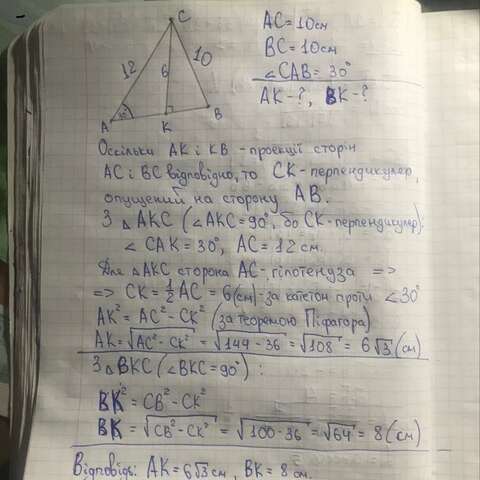 C
12
6
10
A
30°
K
B
AC = 10 см
BC = 10 см
∠CAB = 30°
AK - ?, BK - ?
Оскільки AK і KB - проекції сторін
AC і BC відповідно, то CK - перпендикуляр,
опущений на сторону AB.
З △AKC (∠AKC = 90°, бо CK - перпендикуляр):
∠CAK = 30°, AC = 12 см.
Для △AKC сторона AC - гіпотенуза =>
=> CK = 1/2 AC = 6 (см) - за катетом проти ∠30°
AK² = AC² - CK² (за теоремою Піфагора)
AK = √AC² - CK² = √144 - 36 = √108 = 6√3 (см)
З △BKC (∠BKC = 90°) :
BK² = CB² - CK²
BK = √CB² - CK² = √100 - 36 = √64 = 8 (см)
Відповідь: AK = 6√3 см, BK = 8 см.